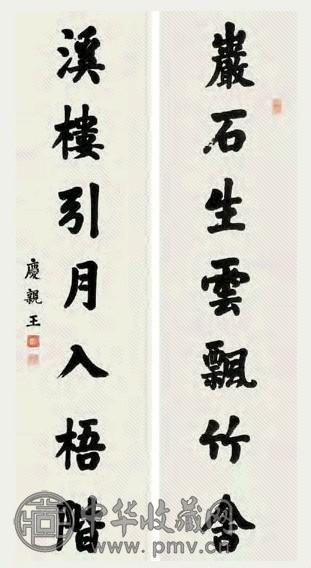 巖石生雲飄竹舍
溪樓引月入梧階
慶親王
中华收藏网
www.pmv.cn